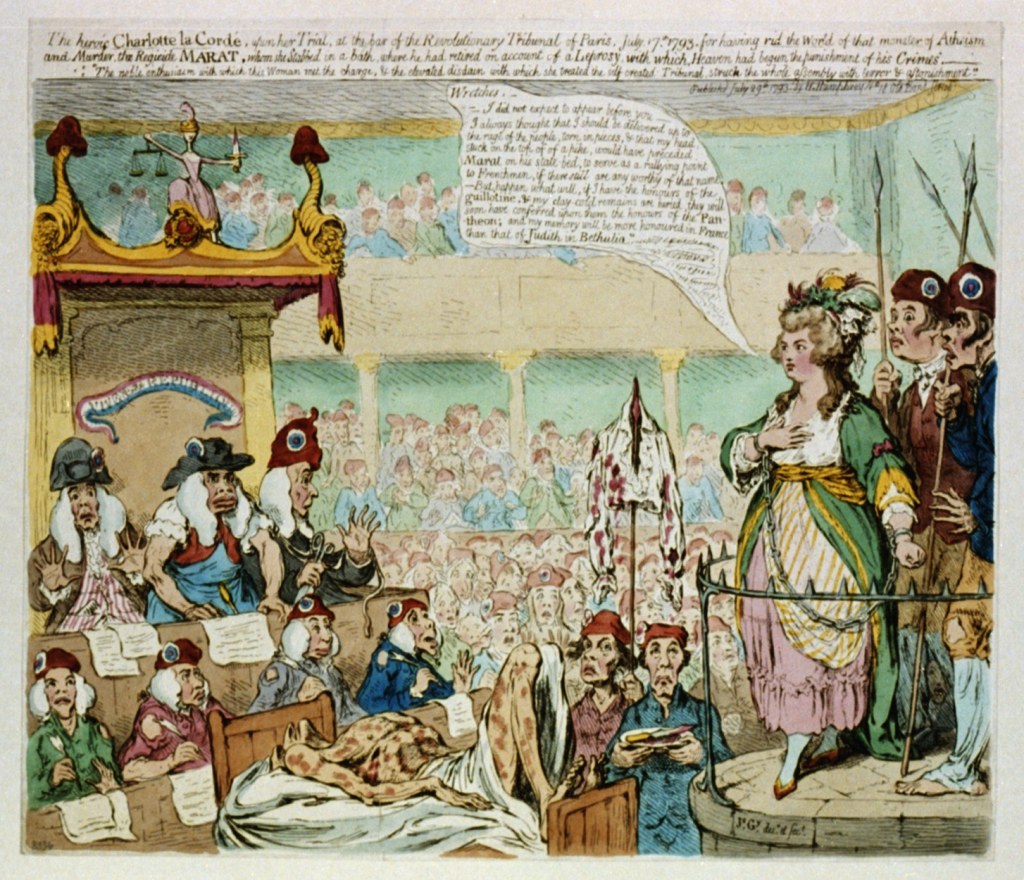 The heroic Charlotte la Cordé, upon her Trial, at the bar of the Revolutionary Tribunal of Paris, July 17th 1793. for having rid the World of that monster of Atheism
and Murder, the Regicide MARAT, whom she stabbed in a bath, where he had retired on account of a Leprosy, with which, Heaven had begun the punishment of his Crimes.
"The noble enthusiasm with which this Woman met the charge, & the elevated disdain with which she treated the self created Tribunal, struck the whole assembly with terror & astonishment."
Publish'd July 29th 1793. by H. Humphrey No 18 Old Bond Street
Wretches, —
— I did not expect to appear before you —
I always thought that I should be delivered up to
the rage of the people, torn in pieces, & that my head,
stuck on the top of a pike, would have preceded
Marat on his state bed, to serve as a rallying point
to Frenchmen, if there still are any worthy of that name
— But, happen what will, if I have the honours of the
guillotine, & my clay cold remains are buried, they will
soon have conferred upon them the honours of the Pan-
theon; and my memory will be more honoured in France
than that of Judith in Bethulia.
VIVE LA REPUBLIQUE
Js. Gy. des. et fect.